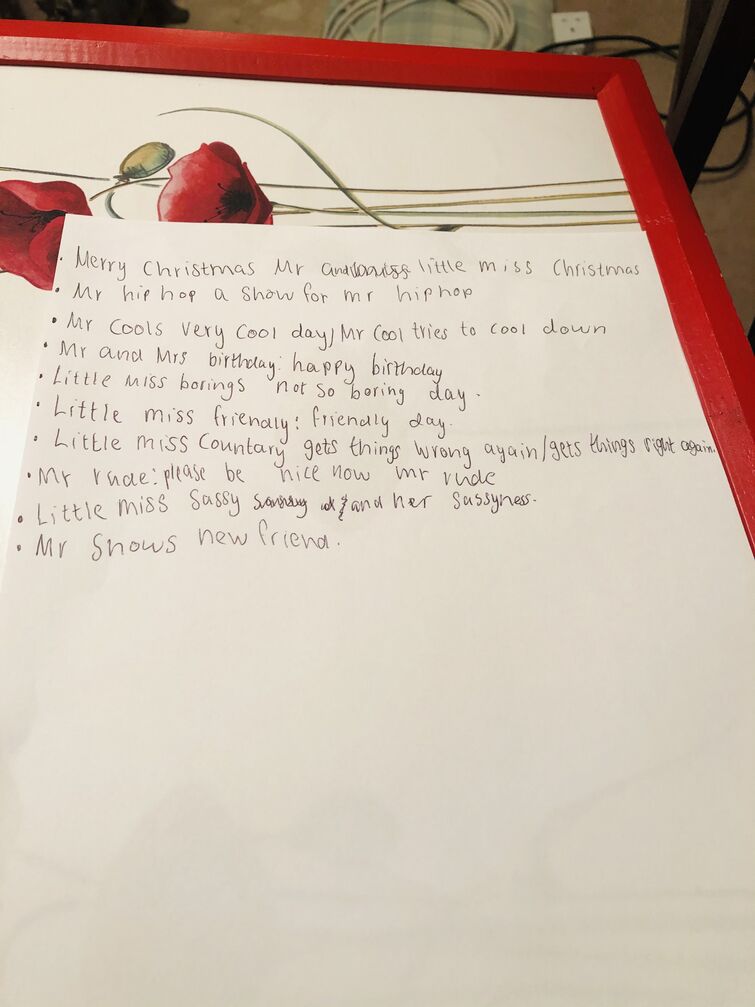 • Merry Christmas Mr and little miss Christmas
• Mr hip hop a show for mr hiphop
• Mr Cools very cool day/Mr Cool tries to cool down
• Mr and Mrs birthday: happy birthday
• Little miss borings not so boring day.
• Little miss friendly: friendly day.
• Little miss Countary gets things wrong again/gets things right again.
• Mr rude: please be nice now mr rude
• Little miss Sassy and her Sassyness.
• Mr Snows new friend.